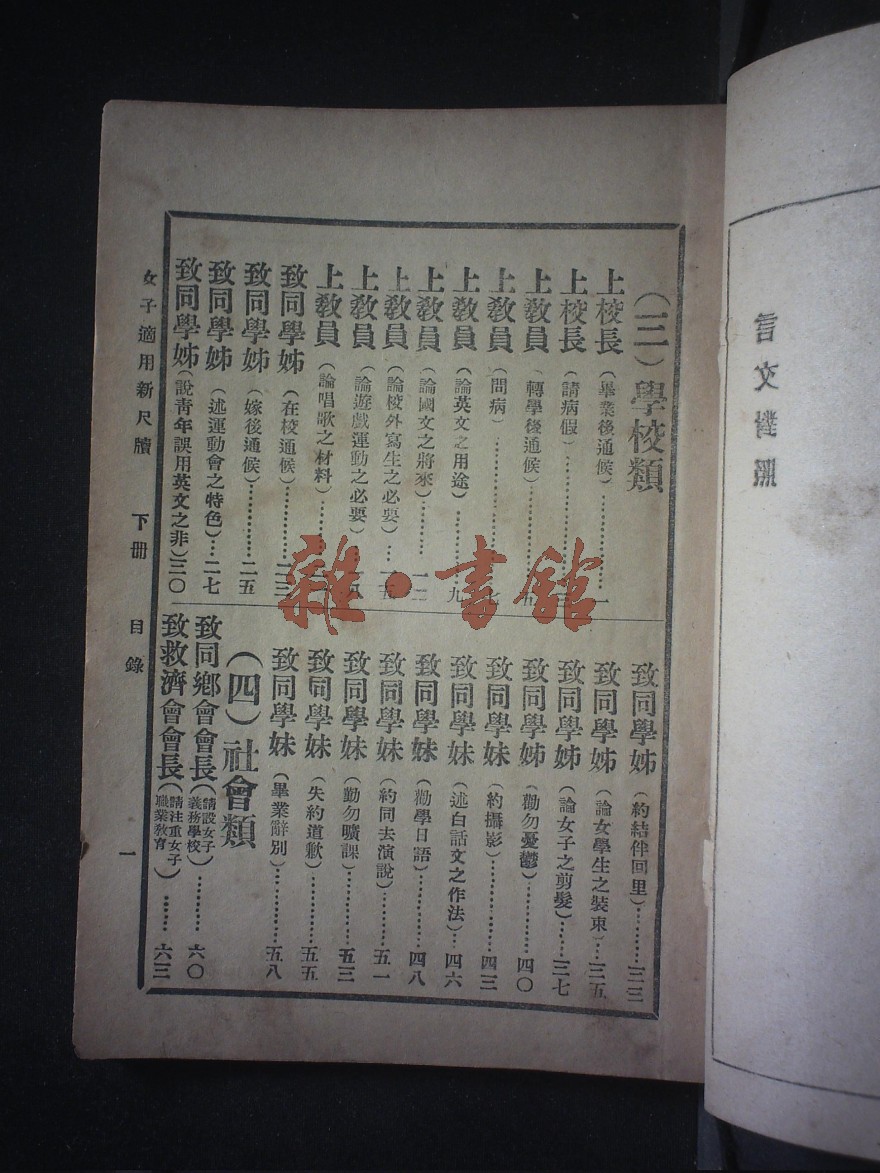 （三）學校類
上校長（畢業後通候）…………一
上校長（請病假）…………三
上教員（轉學後通候）…………五
上教員（問病）…………七
上教員（論英文之用途）…………九
上教員（論國文之將來）…………一二
上教員（論校外寫生之必要）…一五
上教員（論遊戲運動之必要）…
上教員（論唱歌之材料）…………
致同學姊（在校通候）…………二三
致同學姊（嫁後通候）…………二五
致同學姊（述運動會之特色）…二七
致同學姊（說靑年誤用英文之非）三〇
致同學姊（約結伴回里）…………三三
致同學姊（論女學生之裝束）…三五
致同學姊（論女子之剪髮）……三七
致同學姊（勸勿憂鬱）…………四〇
致同學妹（約攝影）…………四三
致同學妹（述白話文之作法）…四六
致同學妹（勸學日語）…………四八
致同學妹（約同去演說）………五一
致同學妹（勸勿曠課）…………五三
致同學妹（失約道歉）…………五五
致同學妹（畢業辭別）…………五八
（四）社會類
致同鄉會會長（請設女子義務學校）………六〇
致救濟會會長（請注重女子職業敎育）……六三
女子適用新尺牘　下册　目錄　一
雜·書館
言文對照